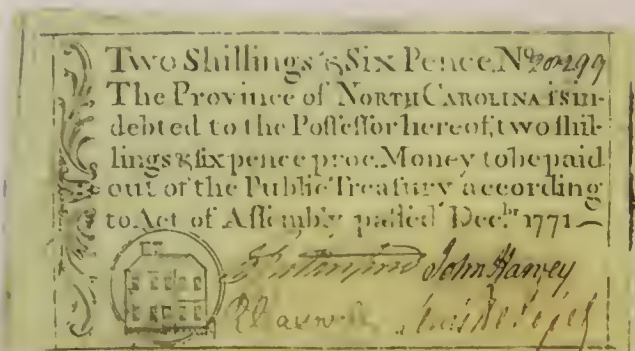 Two Shillings & Six Pence. No 20299
The Province of NORTH CAROLINA is in-
debted to the Poſſeſſor hereof, two ſhil-
lings & ſix pence proc. Money to be paid
out of the Public Treaſury according
to Act of Aſſembly paſſed Decbr 1771
John Harvey
Lewis De Roſſet